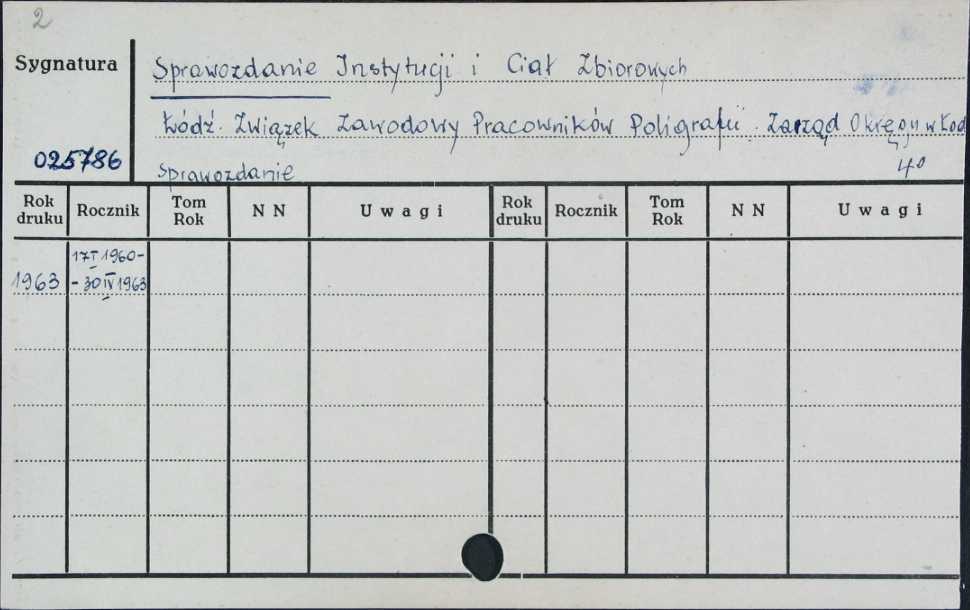 2
Sygnatura
Sprawozdanie Instytucji i Ciał Zbiorowych
Łódź. Związek Zawodowy Pracowników Poligrafii. Zarząd Okręgu w Łod
025786
Sprawozdanie 4°
Rok druku Rocznik Tom Rok N N Uwagi Rok druku Rocznik Tom Rok N N Uwagi
17 I 1960-
1963 - 30 IV 1963